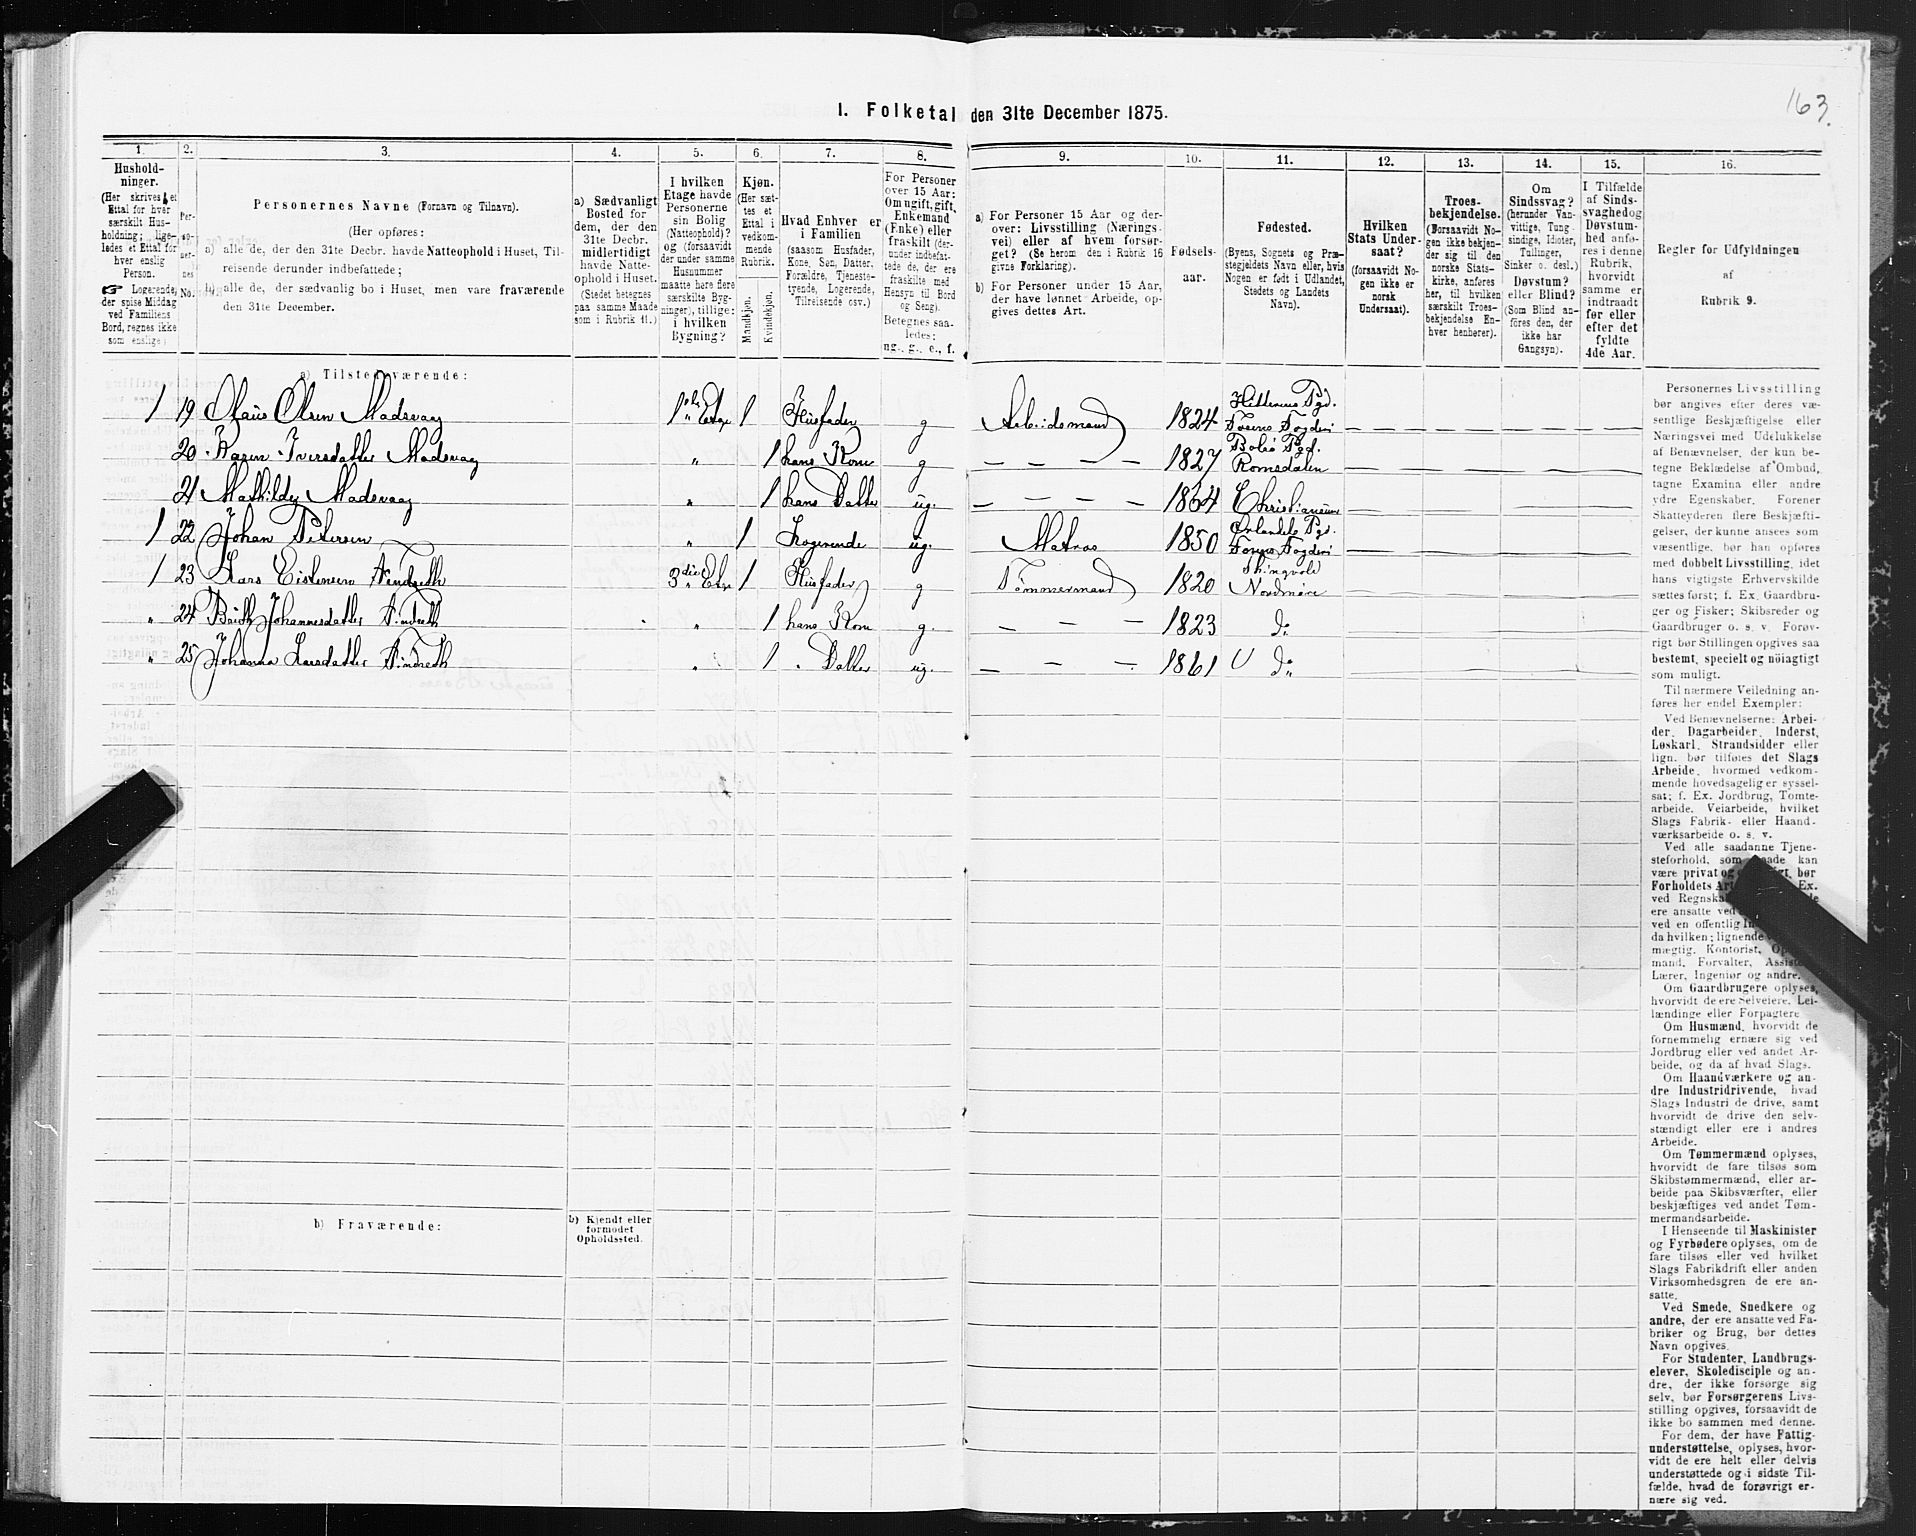 163.
1. Folketal den 31te December 1875.
1. 2. 3. 4. 5. 6. 7. 8. 9. 10. 11. 12. 13. 14. 15. 16.
Hushold-
ninger.
(Her skrives et
Ettal for hver
særskilt Hus-
holdning; lige-
ledes et Ettal for
hver enslig
Person.
☞ Logerende,
der spise Middag
ved Familiens
Bord, regnes ikke
som enslige)
Per-
so-
ner-
nes
No.
Personernes Navne (Fornavn og Tilnavn).
(Her opføres:
a) alle de, der den 31te Decbr. havde Natteophold i Huset, Til-
reisende derunder indbefattede;
b) alle de, der sædvanlig bo i Huset, men vare fraværende
den 31te December.
a) Sædvanligt
Bosted for
dem, der den
31te Decbr.
midlertidigt
havde Natte-
ophold i Huset.
(Stedet betegnes
paa samme Maade
som i Rubrik 11.)
I hvilken
Etage havde
Personerne
sin Bolig
(Natteophold)?
og (forsaavidt
der under samme
Husnummer
maatte høre flere
særskilte Byg-
ninger), tillige:
i hvilken
Bygning?
Kjøn.
(Her sæt-
tes et
Ettal i
vedkom-
mende
Rubrik.
Mandkjøn.
Kvindekjøn.
Hvad Enhver er
i Familien
(saasom Husfader,
Kone, Søn, Datter,
Forældre, Tjeneste-
tyende, Logerende,
Tilreisende osv.)
For Personer
over 15 Aar:
Om ugift, gift,
Enkemand
(Enke) eller
fraskilt (der-
under indbefat-
tede de, der ere
fraskilte med
Hensyn til Bord
og Seng).
Betegnes saa-
ledes:
ug., g., e., f.
a) For Personer 15 Aar og der-
over: Livsstilling (Nærings-
vei) eller af hvem forsør-
get? (Se herom den i Rubrik 16
givne Forklaring).
b) For Personer under 15 Aar,
der have lønnet Arbeide, op-
gives dettes Art.
Fødsels-
aar.
Fødested.
(Byens, Sognets og Præ-
stegjeldets Navn eller, hvis
Nogen er født i Udlandet,
Stedets og Landets
Navn).
Hvilken
Stats Under-
saat?
(forsaavidt No-
gen ikke er
norsk
Undersaat).
Troes-
bekjendelse.
(Forsaavidt No-
gen ikke bekjen-
der sig til den
norske Stats-
kirke, anføres
her, til hvilken
særskilt Troes-
bekjendelse En-
hver henhører).
Om
Sindssvag?
(herunder Van-
vittige, Tung-
sindige, Idioter,
Tullinger,
Sinker o. desl.)
Døvstum?
eller Blind?
(Som Blind an-
føres den, der
ikke har
Gangsyn).
I Tilfælde
af Sinds-
svaghed og
Døvstum-
hed anfø-
res i denne
Rubrik,
hvorvidt
samme er
indtraadt
før eller
efter det
fyldte
4de Aar.
Regler for Udfyldningen
af
Rubrik 9.
a) Tilstedeværende:
1 19 Olaus Olsen Madsvaag 1ste Etge 1 Husfader g Arbeidsmand 1824 Hitterens Pgd. Fosens Fogderi
20 Karen Iversdatter Madsvaag „ 1 hans Kone g — — — — 1827 Bolsø Pgd. Romsdalen
21 Mathilde Madsvaag „ 1 hans Datter ug. — — — — 1864 Christiansund
1 22 Johan Petersen „ 1 Logerende ug. Matros 1850 Ørlandets Pgd. Fosens Fogderi
1 23 Lars Eistensen 3die Etge 1 Husfader g Tømmermand 1820 Thingvold Nordmøre
„ 24 Johannesdatter „ 1 hans Kone g. — — — 1823 do
„ 25 Johanna Larsdatter „ 1 „ Datter ug — — — — 1861 do
b) Fraværende:
b) Kjendt eller
formodet
Opholdssted.
Personernes Livsstilling
bør angives efter deres væ-
sentlige Beskjæftigelse eller
Næringsvei med Udelukkelse
af Benævnelser, der kun be-
tegne Beklædelse af Ombud,
tagne Examina eller andre
ydre Egenskaber. Forener
Skatteyderen flere Beskjæfti-
gelser, der kunne ansees som
væsentlige, bør han opføres
med dobbelt Livsstilling, idet
hans vigtigste Erhvervskilde
sættes først; f. Ex. Gaardbru-
ger og Fisker; Skibsreder og
Gaardbruger o. s. v. Forøv-
rigt bør Stillingen opgives saa
bestemt, specielt og nöiagtigt
som muligt.
Til nærmere Veiledning an-
føres her endel Exempler:
Ved Benævnelserne: Arbei-
der, Dagarbeider, Inderst,
Løskarl, Strandsidder eller
lign. bør tilføies det Slags
Arbeide, hvormed vedkom-
mende hovedsagelig er syssel-
sat; f. Ex. Jordbrug, Tomte-
arbeide, Veiarbeide, hvilket
Slags Fabrik- eller Haand-
værksarbeide o. s. v.
Ved alle saadanne Tjene-
steforhold, som kan
være privat og bør
Forholdets Ex.
ved
ere ansatte ved
ved en offentlig
da hvilken; lignende
mægtig, Kontorist,
mand, Forvalter,
Lærer, Ingeniør og andre.
Om Gaardbrugere oplyses,
hvorvidt de ere Selveiere, Lei-
lændinge eller Forpagtere
Om Husmænd, hvorvidt de
fornemmelig ernære sig ved
Jordbrug eller ved andet Ar-
beide, og da af hvad Slags.
Om Haandværkere og an-
dre Industridrivende, hvad
Slags Industri de drive, samt
hvorvidt de drive den selv-
stændigt eller ere i andres
Arbeide.
Om Tømmermænd oplyses,
hvorvidt de fare tilsøs som
Skibstømmermænd, eller ar-
beide paa Skibsværfter, eller
beskjæftiges ved andet Tøm-
mermandsarbeide.
I Henseende til Maskinister
og Fyrbødere oplyses, om de
fare tilsøs eller ved hvilket
Slags Fabrikdrift eller anden
Virksomhedsgren de ere an-
satte.
Ved Smede, Snedkere og
andre, der ere ansatte ved Fa-
briker og Brug, bør dettes
Navn opgives.
For Studenter, Landbrugs-
elever, Skoledisciple og an-
dre, der ikke forsørge sig
selv, bør Forsørgerens Livs-
stilling opgives, forsaavidt de
ikke bo sammen med denne.
For dem, der have Fattig-
understøttelse, oplyses, hvor-
vidt de ere helt eller delvis
understøttede og i sidste Til-
fælde, hvad de forøvrigt er-
nære sig ved.